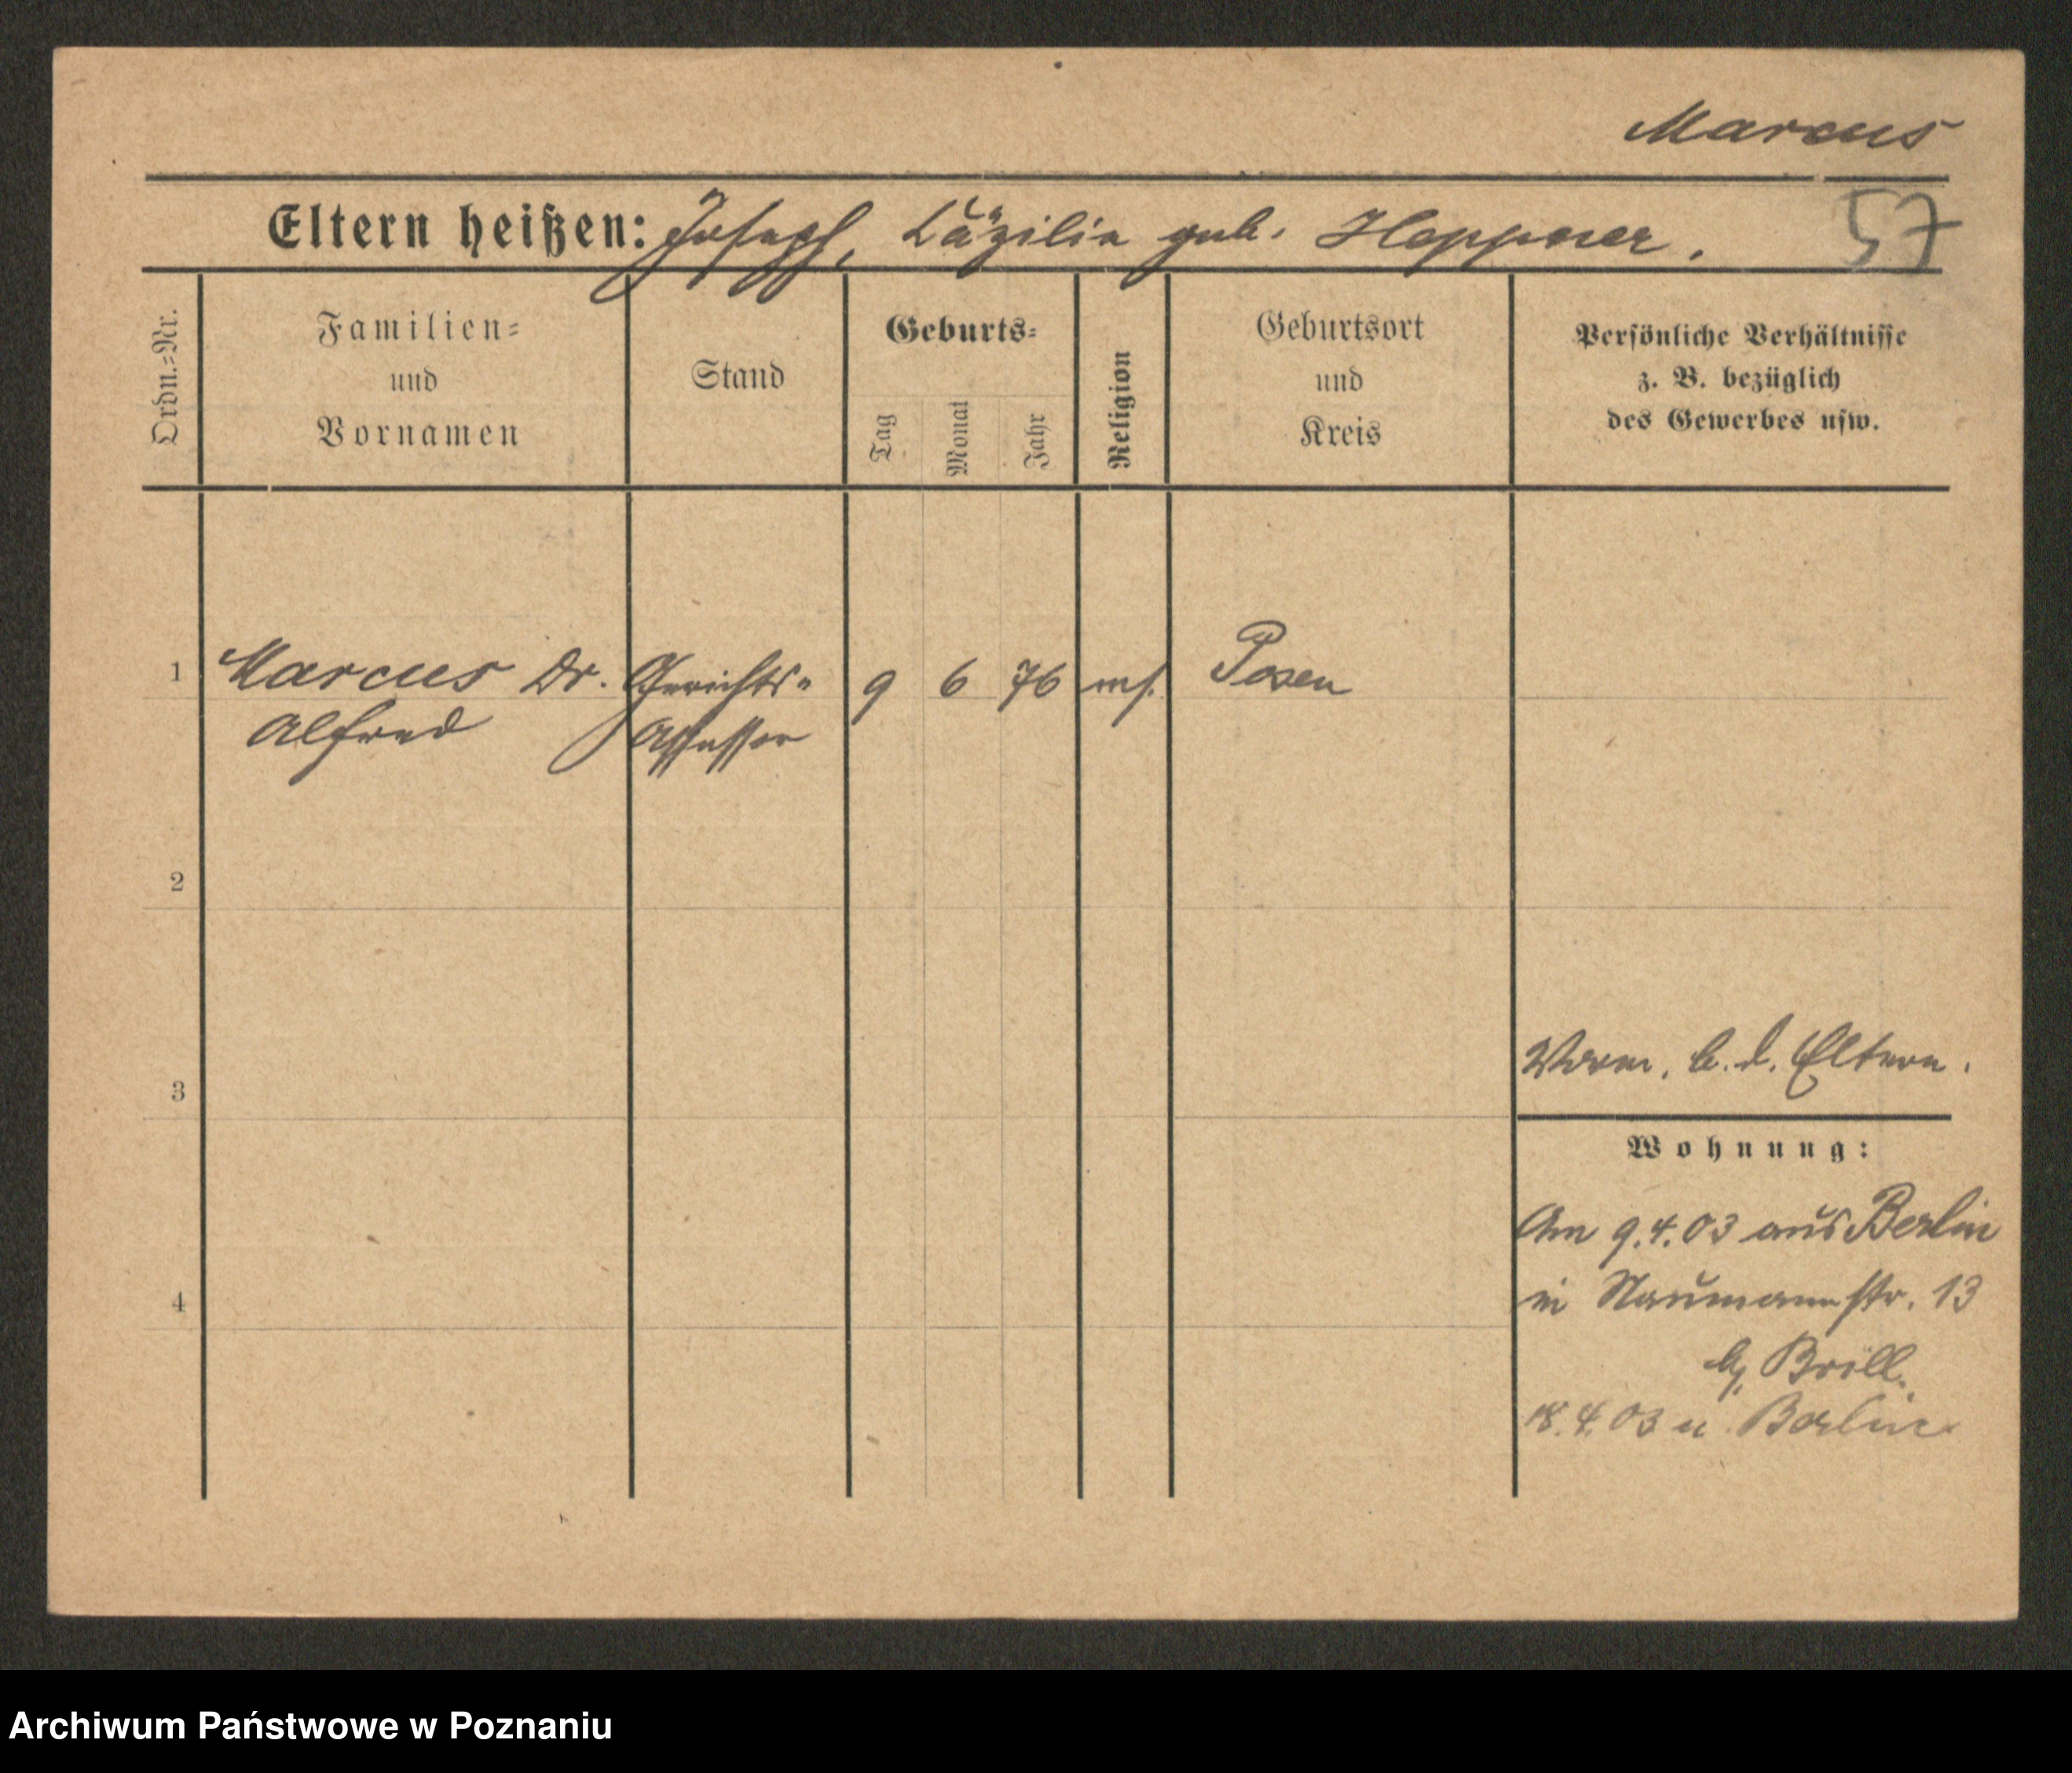 Marcus
Eltern heißen: Joseph, Cäzilia geb. Heppner.
57
Ordn.=Nr.
Familien=
und
Vornamen
Stand
Geburts=
Tag
Monat
Jahr
Religion
Geburtsort
und
Kreis
Persönliche Verhältnisse
z. B. bezüglich
des Gewerbes usw.
1 Marcus Dr. Gerichts= 9 6 76 ms. Posen
Alfred Assessor
2
3
Vorm. b. d. Eltern.
Wohnung:
Am 9.4.03 aus Berlin
in Naumannstr. 13
4
b/ Brill.
18.4.03 n. Berlin
Archiwum Państwowe w Poznaniu